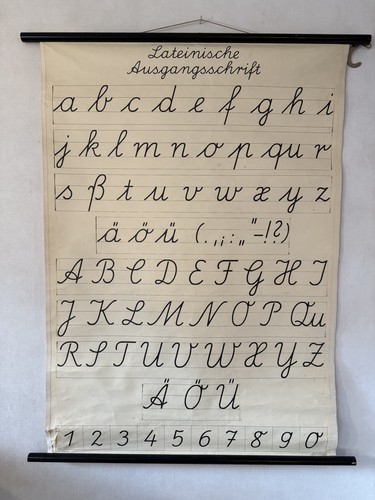 Lateinische
Ausgangsschrift
a b c d e f g h i
j k l m n o p qu r
s ß t u v w x y z
ä ö ü (.,;: „ "–!?)
A B C D E F G H I
J K L M N O P Qu
R S T U V W X Y Z
Ä Ö Ü
1 2 3 4 5 6 7 8 9 0